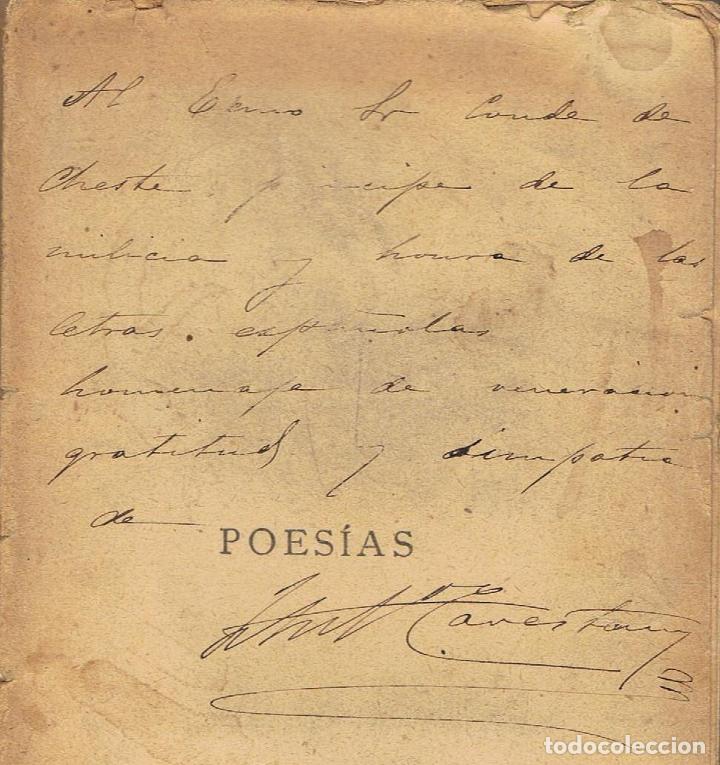 Al Excmo Sr Conde de
Cheste principe de la
milicia y honra de las
letras españolas
homenaje de veneracion
gratitud y simpatia
de
POESÍAS
Cavestany
todocoleccion